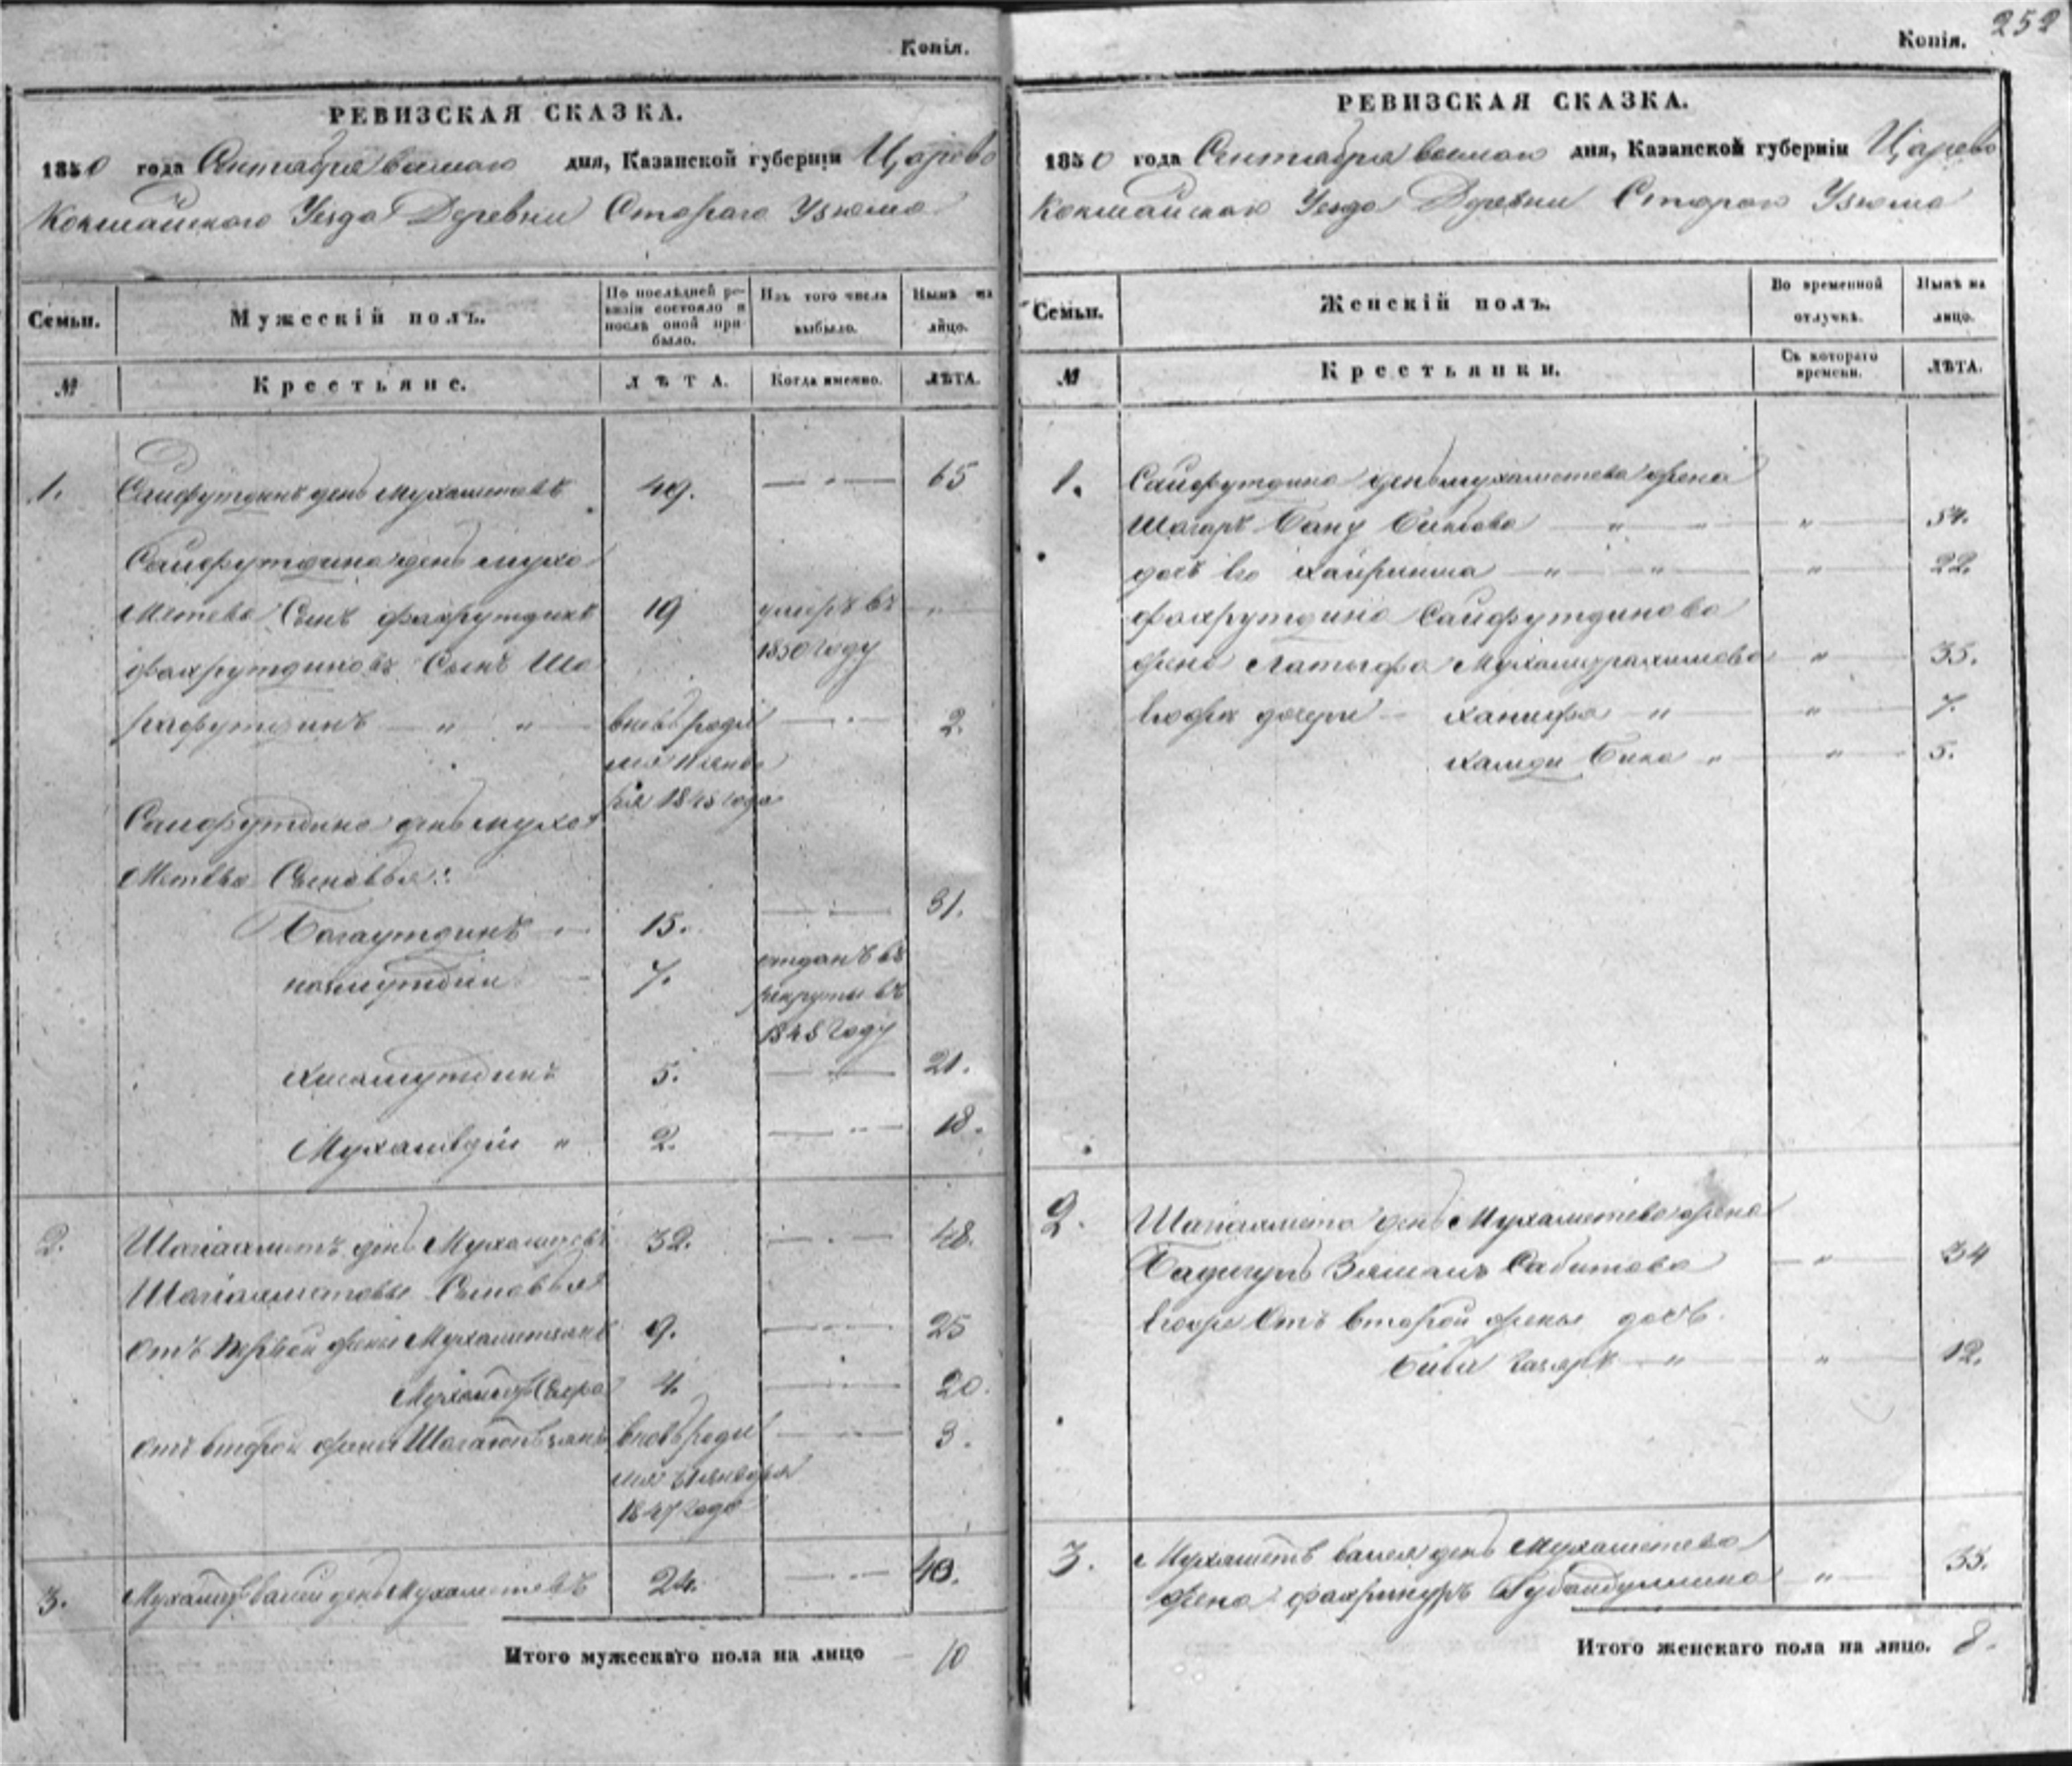 Копія.
РЕВИЗСКАЯ СКАЗКА.
1850 года Сентября дня, Казанской губерніи Царево
Кокшайского Уезда Деревни Старого Узюма
Семьи. Мужескій полъ. По послѣдней ревизіи состояло и послѣ оной прибыло. Изъ того числа выбыло. Нынѣ на лицо.
№ Крестьяне. ЛѢТА. Когда именно. ЛѢТА.
1. Сайфутдинъ день Мухаметевъ 49. 65
Сайфутдина день Муха
метева Сынъ Фахрутдинъ 19 умеръ въ
1850 году
Фахрутдиновъ Сынъ Ша
рафутдинъ " " вновь роди 2.
лся Янва
ря 1848 года
Сайфутдина день Муха
метева Сыновья:
Богаутдинъ 15. 31.
7. отданъ въ
рекруты въ
1848 году
Хисамутдинъ 5. 21.
2. 18.
2. Шагиахметъ день Мухаметевъ 32. 48.
Шагиахметовы Сыновья
отъ первой жены Мухаметзянъ 9. 25
4. 20.
отъ второй жены вновь роди 3.
лся Января
1847 года
3. Мухаметъ валей день Мухаметевъ 24. 40.
Итого мужескаго пола на лицо 10
252
Копія.
РЕВИЗСКАЯ СКАЗКА.
1850 года Сентября дня, Казанской губерніи Царево
Кокшайского Уезда Деревни Старого Узюма
Семьи. Женскій полъ. Во временной отлучкѣ. Нынѣ на лицо.
№ Крестьянки. Съ котораго времени. ЛѢТА.
1. Сайфутдина день Мухаметева жена
Бану " " 54.
дочь его " " " 22.
Фахрутдина Сайфутдинова
жена Латыфа Мухаметрахимова " 35.
его же дочери Ханифа " " 7.
Хамди Бика " " 5.
2. Шагиахмета день Мухаметева жена
Зямалъ Сабитова " 34
его же отъ второй жены дочь
Биби " " 12.
3. Мухаметъ валея день Мухаметева
жена Фахринуръ Губайдуллина " 35.
Итого женскаго пола на лицо. 8.